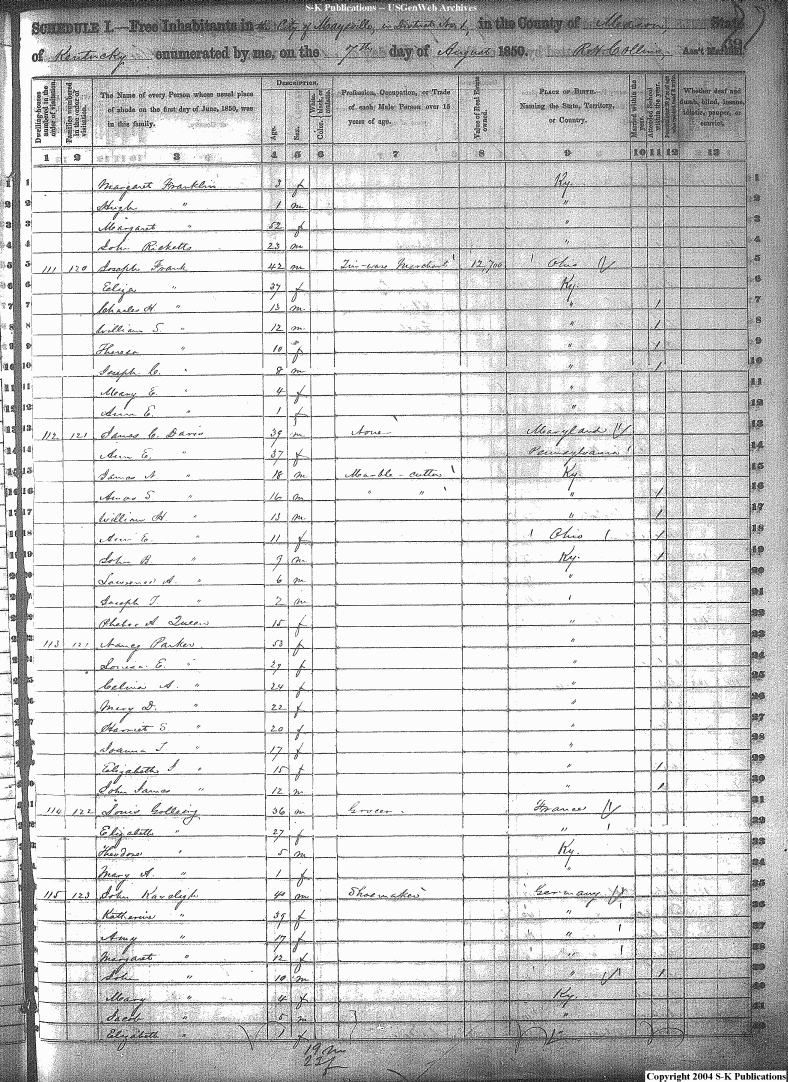 S-K Publications -- USGenWeb Archives
SCHEDULE I.—Free Inhabitants in City of Maysville, in District No. 1, in the County of Mason, State
of Kentucky enumerated by me, on the 7th day of August 1850. Ass't Marshal
Dwelling-houses numbered in the order of visitation. Families numbered in the order of visitation. The Name of every Person whose usual place of abode on the first day of June, 1850, was in this family. DESCRIPTION. Age. Sex. White, Color black, or mulatto. Profession, Occupation, or Trade of each Male Person over 15 years of age. Value of Real Estate owned. PLACE OF BIRTH. Naming the State, Territory, or Country. Married within the year. Attended School within the year. Whether deaf and dumb, blind, insane, idiotic, pauper, or convict.
1 2 3 4 5 6 7 8 9 10 11 12 13
1 Margaret Franklin 3 f Ky. 1
2 Hugh " 1 m " 2
3 Margaret " 52 f " 3
4 John Ricketts 23 m " 4
5 111 120 Joseph Frank 42 m Tin-ware Merchant 12,700 Ohio 5
6 Eliza " 37 f Ky. 6
7 Charles H. " 13 m " / 7
8 William S. " 12 m " / 8
9 Theresa " 10 f " / 9
10 Joseph C. " 8 m " / 10
11 Mary E. " 4 f " 11
12 Ann E. " 1 f " 12
13 112 121 James C. Davis 39 m None Maryland 13
14 Ann E. " 37 f Pennsylvania 14
15 James A " 18 m Marble-cutter Ky. 15
16 Amos S " 16 m " " " / 16
17 William H " 13 m " / 17
18 Ann E. " 11 f Ohio / 18
19 John B " 9 m Ky. / 19
Lawrence A. " 6 m "
Joseph T. " 2 m " 21
Phebe A. Queen 15 f " 22
113 121 Nancy Parker 53 f " 23
Louisa E. " 29 f " 24
Celina A. " 24 f " 25
Mary D. " 22 f " 26
Harriet S " 20 f " 27
Joanna T. " 17 f " 28
Elizabeth J " 15 f " / 29
John James " 12 m " /
114 122 Louis 36 m Grocer France
Elizabeth " 27 f "
Theodore " 5 m Ky.
Mary A. " 1 f "
115 123 John 40 m Shoemaker Germany
Katherine " 39 f "
Amy " 17 f "
Margaret " 12 f "
John " 10 m " /
Mary " 4 f Ky.
Jacob " 5 m "
Elizabeth " 1 f "
19 m
23 f
Copyright 2004 S-K Publications